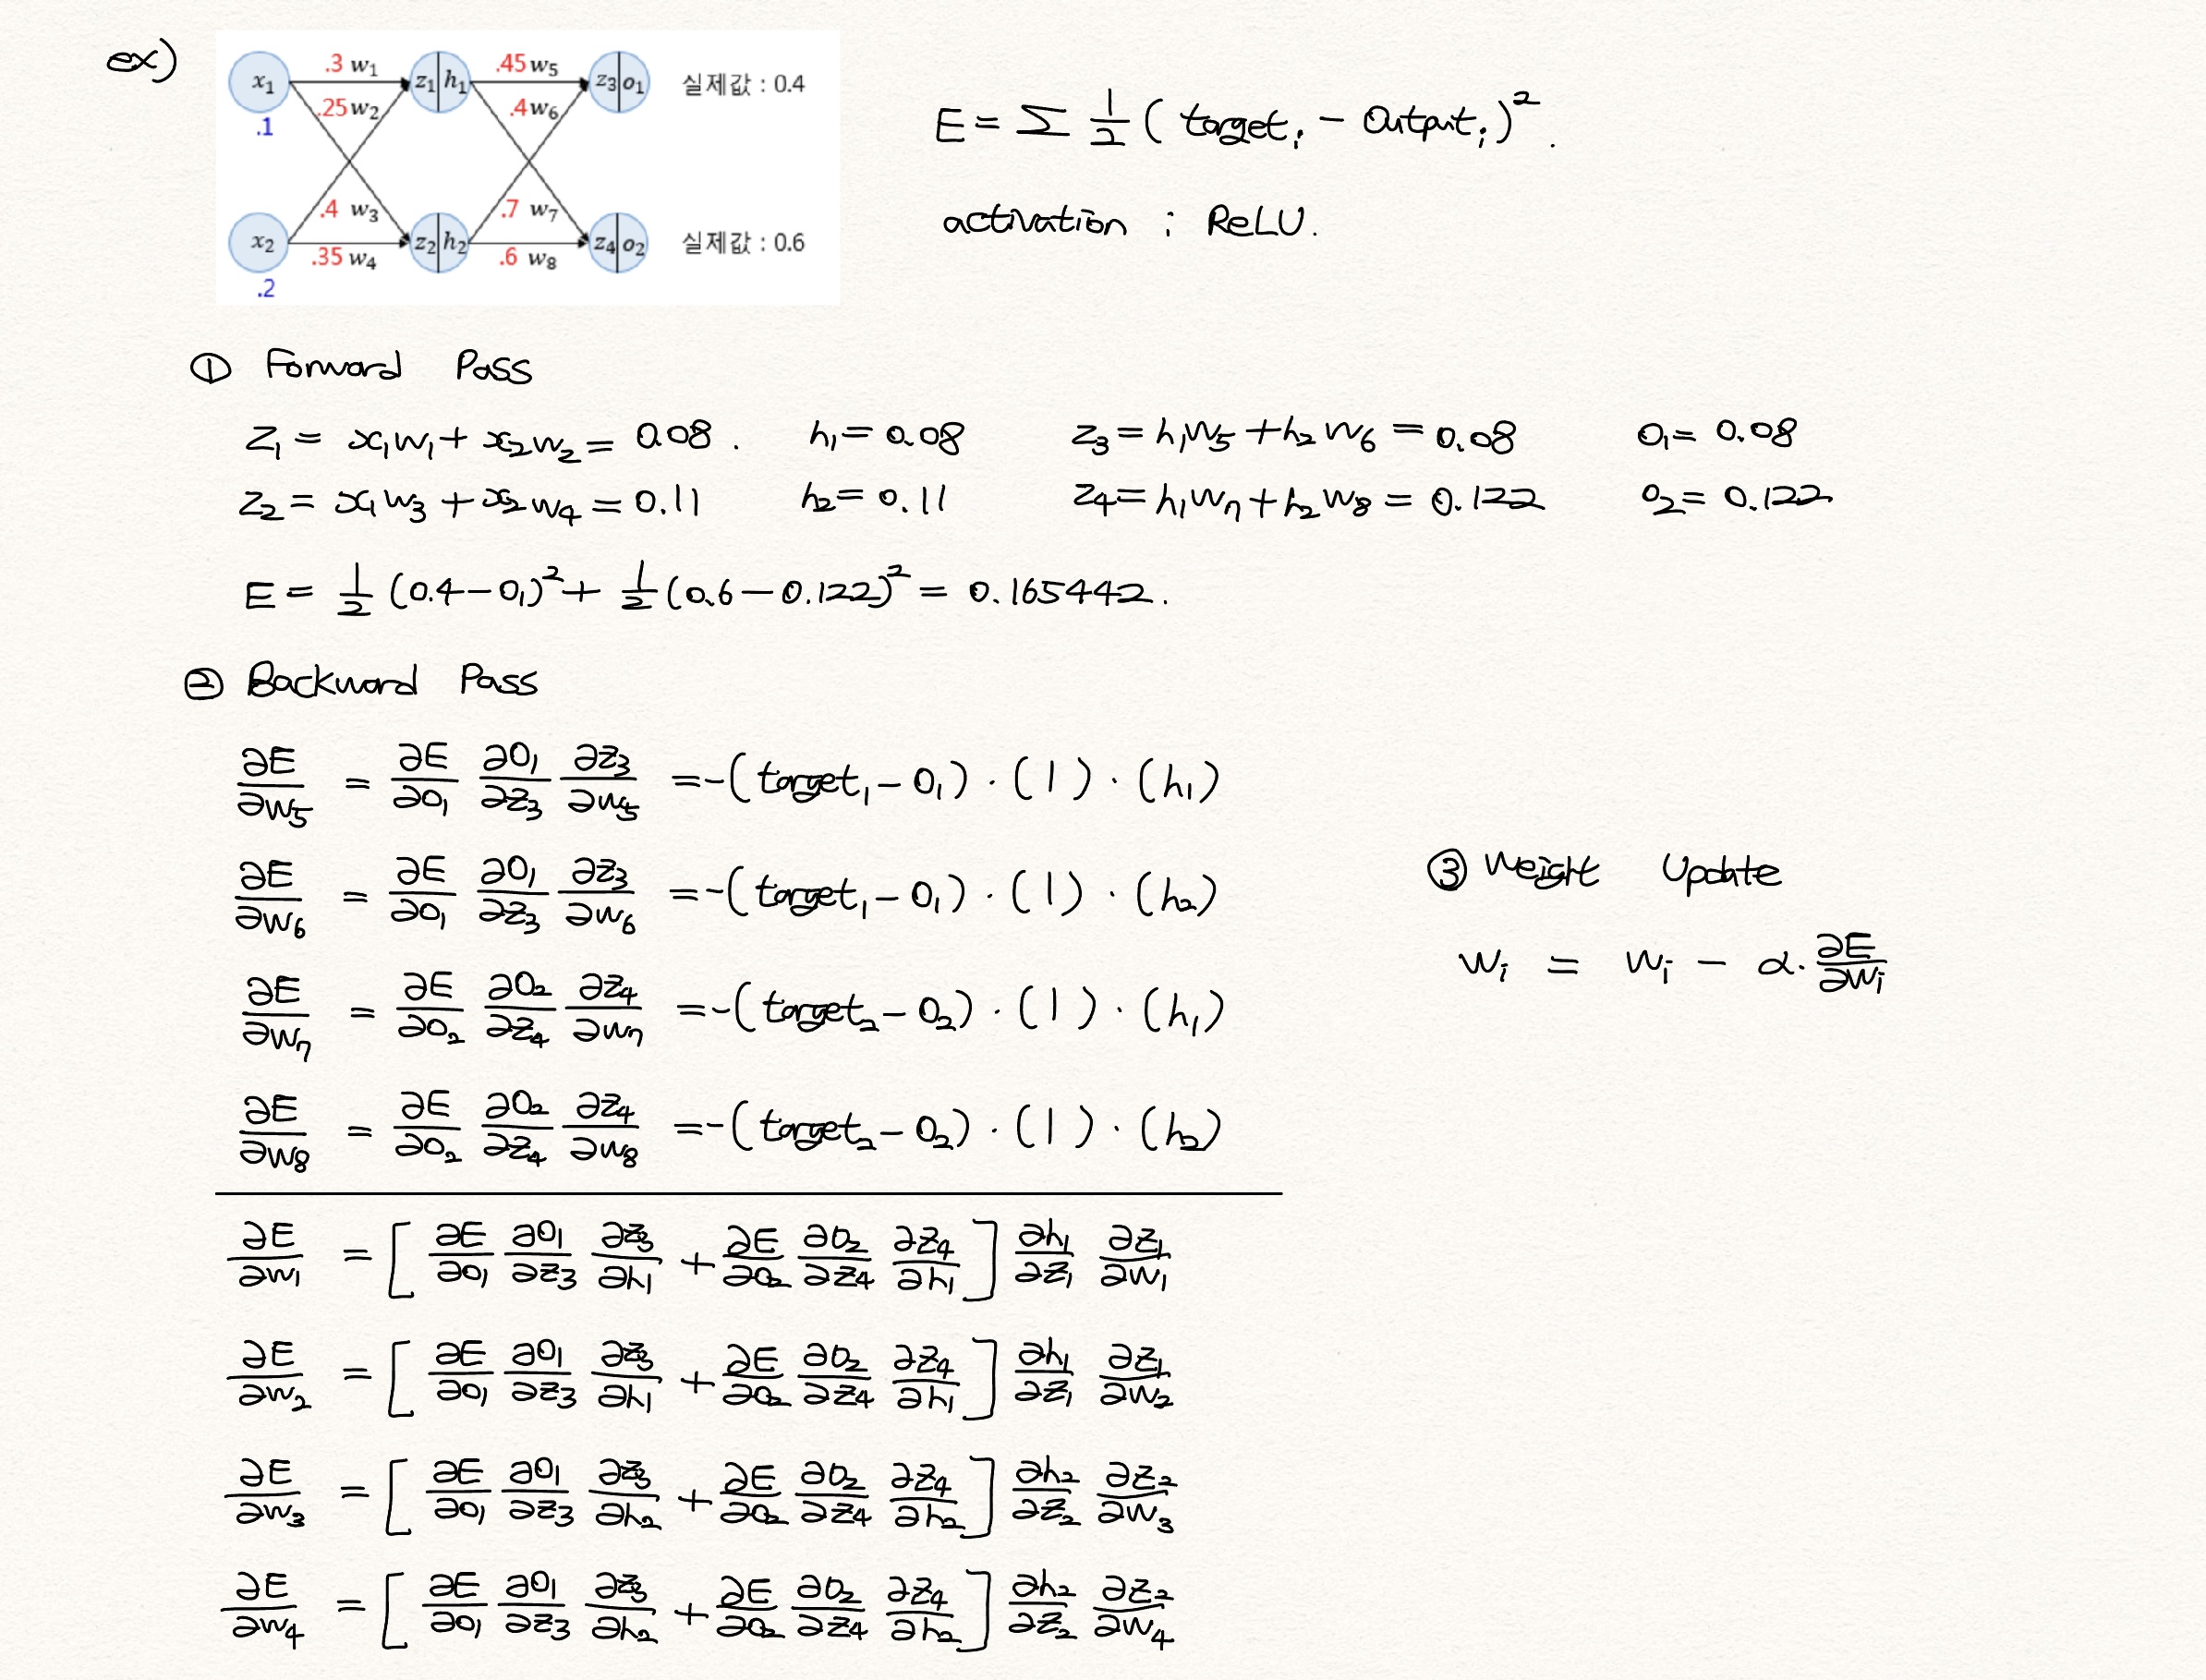 ex)
x₁ .3 w₁ z₁ h₁ .45 w₅ z₃ o₁ 실제값 : 0.4
.25 w₂ .4 w₆
.1
.4 w₃ .7 w₇
x₂ .35 w₄ z₂ h₂ .6 w₈ z₄ o₂ 실제값 : 0.6
.2
E = Σ 1/2 ( targetᵢ − Outputᵢ )² .
activation : ReLU.
① Forward Pass
z₁ = x₁w₁ + x₂w₂ = 0.08 . h₁ = 0.08 z₃ = h₁w₅ + h₂w₆ = 0.08 o₁ = 0.08
z₂ = x₁w₃ + x₂w₄ = 0.11 h₂ = 0.11 z₄ = h₁w₇ + h₂w₈ = 0.122 o₂ = 0.122
E = 1/2 (0.4 − o₁)² + 1/2 (0.6 − 0.122)² = 0.165442.
② Backward Pass
∂E/∂w₅ = ∂E/∂o₁ ∂o₁/∂z₃ ∂z₃/∂w₅ = −(target₁ − o₁) · (1) · (h₁)
∂E/∂w₆ = ∂E/∂o₁ ∂o₁/∂z₃ ∂z₃/∂w₆ = −(target₁ − o₁) · (1) · (h₂)
∂E/∂w₇ = ∂E/∂o₂ ∂o₂/∂z₄ ∂z₄/∂w₇ = −(target₂ − o₂) · (1) · (h₁)
∂E/∂w₈ = ∂E/∂o₂ ∂o₂/∂z₄ ∂z₄/∂w₈ = −(target₂ − o₂) · (1) · (h₂)
∂E/∂w₁ = [ ∂E/∂o₁ ∂o₁/∂z₃ ∂z₃/∂h₁ + ∂E/∂o₂ ∂o₂/∂z₄ ∂z₄/∂h₁ ] ∂h₁/∂z₁ ∂z₁/∂w₁
∂E/∂w₂ = [ ∂E/∂o₁ ∂o₁/∂z₃ ∂z₃/∂h₁ + ∂E/∂o₂ ∂o₂/∂z₄ ∂z₄/∂h₁ ] ∂h₁/∂z₁ ∂z₁/∂w₂
∂E/∂w₃ = [ ∂E/∂o₁ ∂o₁/∂z₃ ∂z₃/∂h₂ + ∂E/∂o₂ ∂o₂/∂z₄ ∂z₄/∂h₂ ] ∂h₂/∂z₂ ∂z₂/∂w₃
∂E/∂w₄ = [ ∂E/∂o₁ ∂o₁/∂z₃ ∂z₃/∂h₂ + ∂E/∂o₂ ∂o₂/∂z₄ ∂z₄/∂h₂ ] ∂h₂/∂z₂ ∂z₂/∂w₄
③ Weight Update
wᵢ = wᵢ − α · ∂E/∂wᵢ